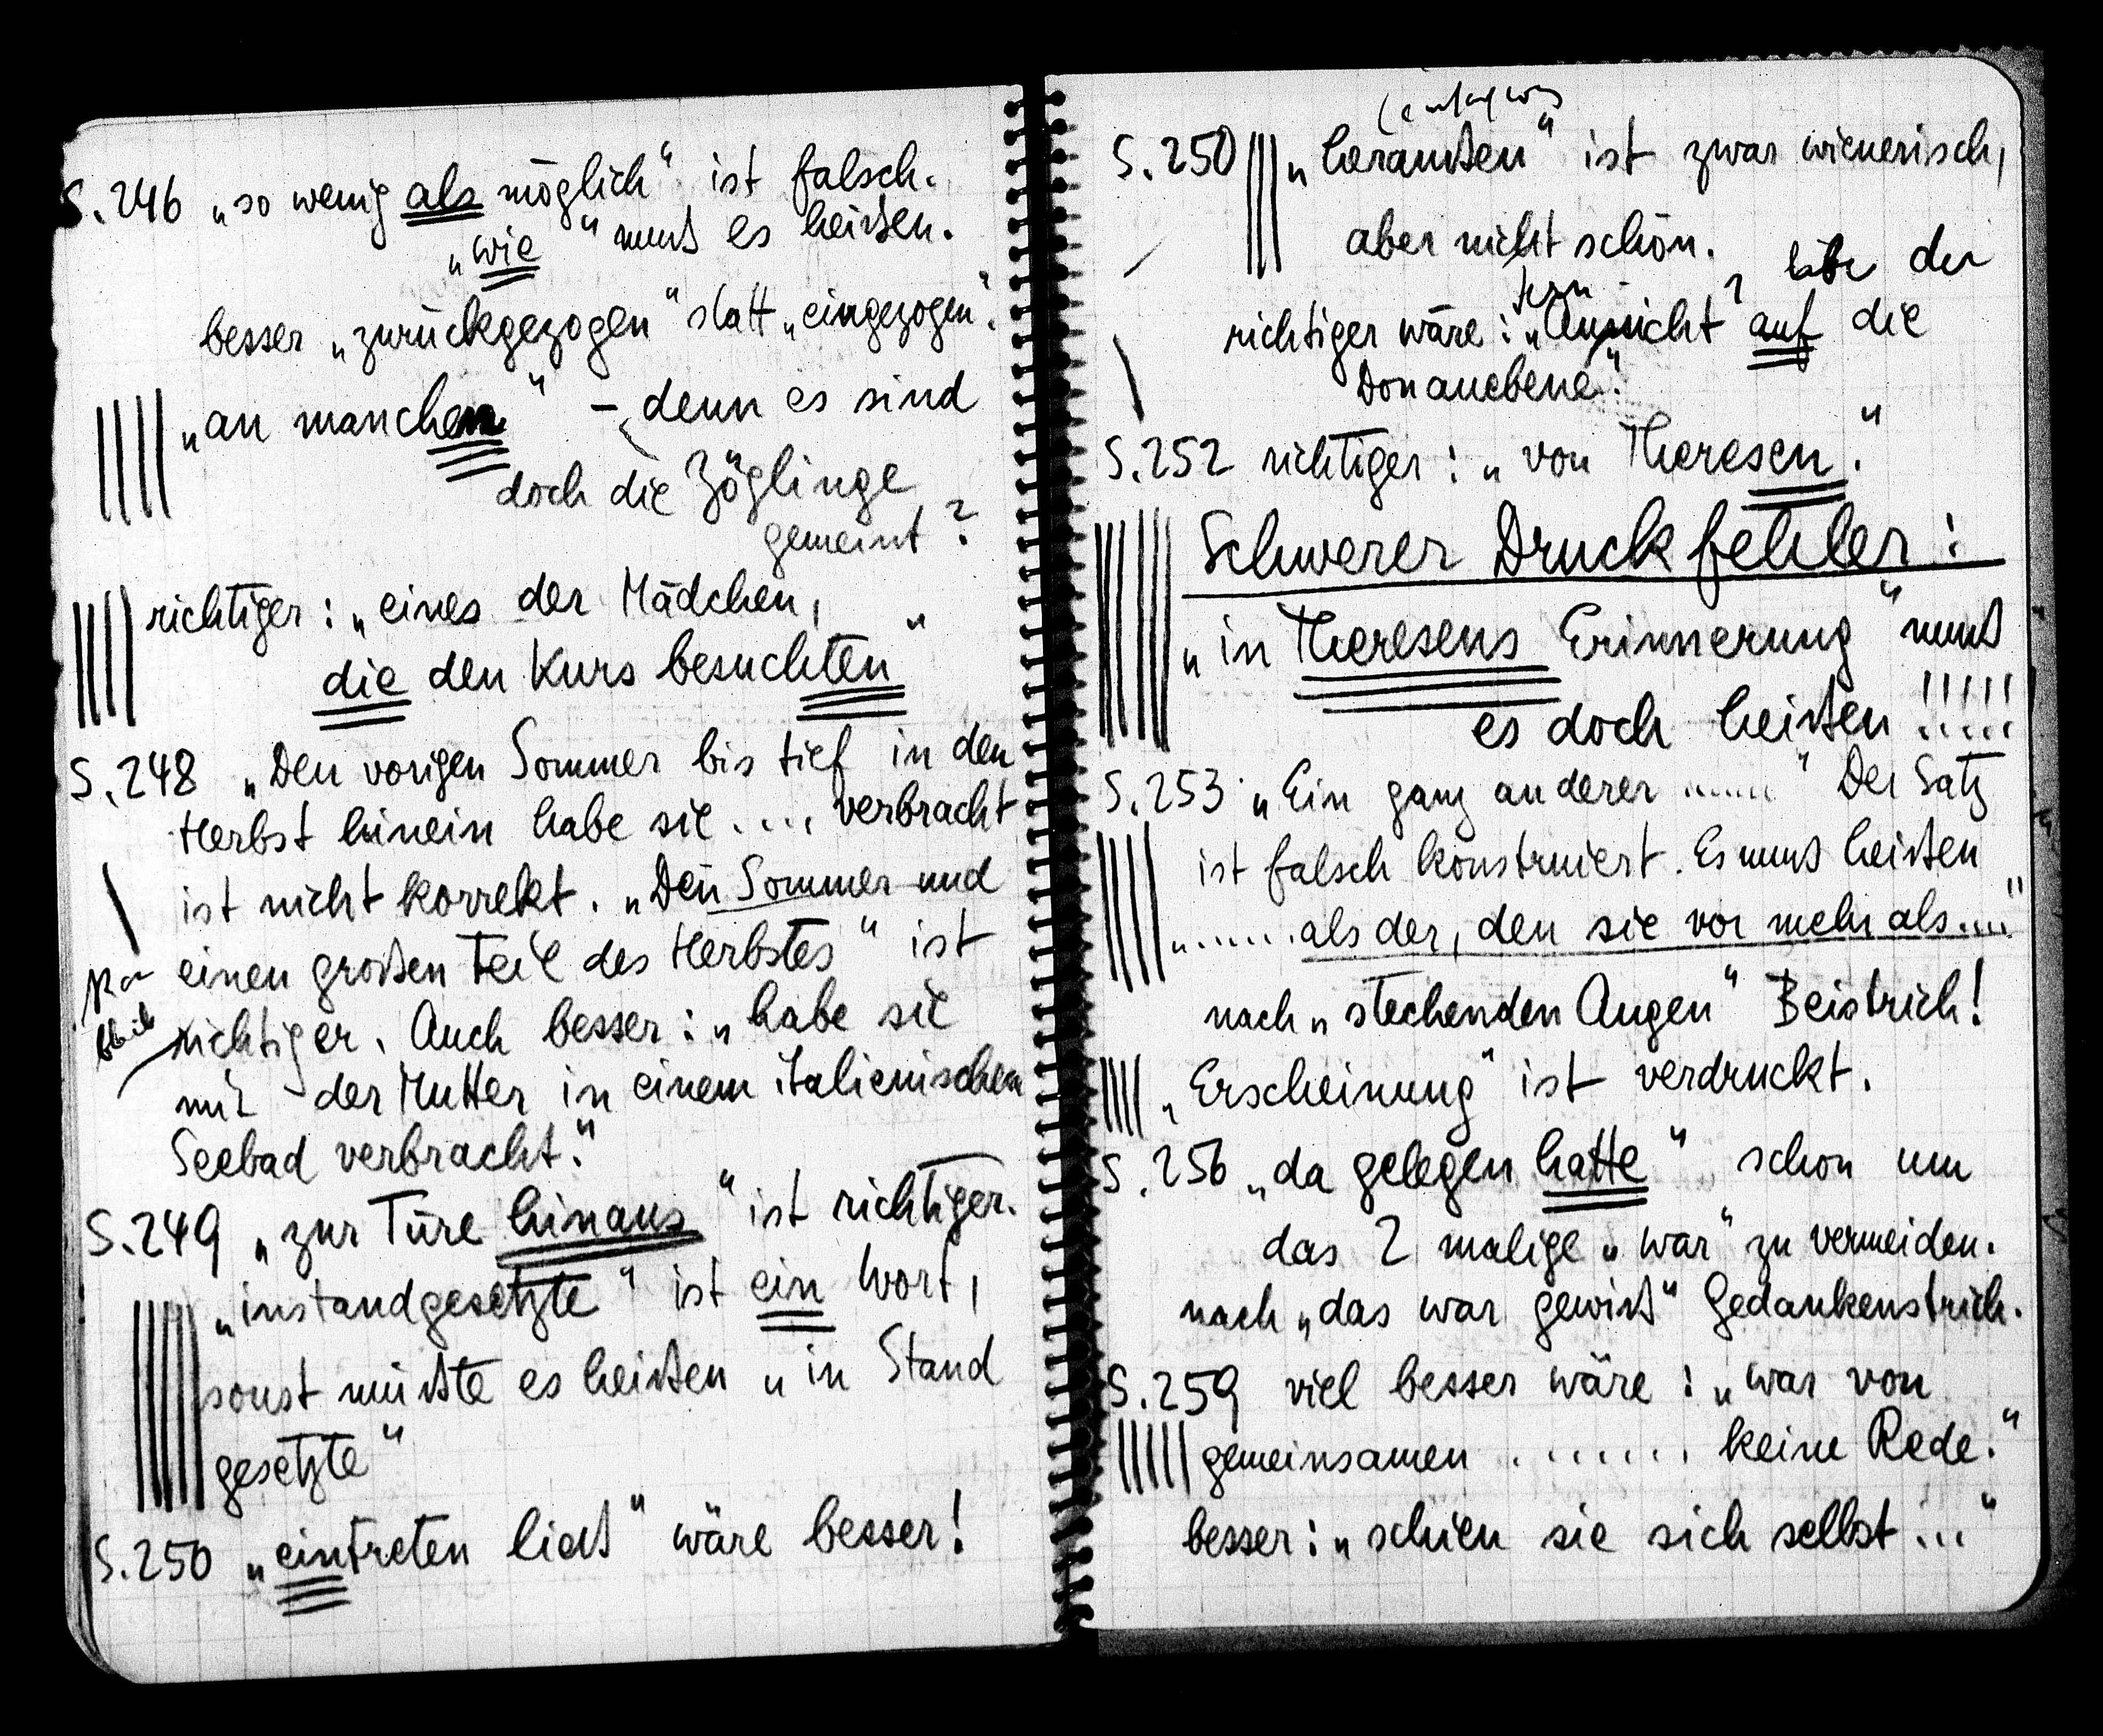 S. 246 „so wenig als möglich“ ist falsch.
„wie“ muß es heißen.
besser „zurückgezogen“ statt „eingezogen“.
„an manchen“ – denn es sind
doch die Zöglinge
gemeint?
richtiger: „eines der Mädchen,
die den Kurs besuchten“
S. 248 „Den vorigen Sommer bis tief in den
Herbst hinein habe sie .... verbracht
ist nicht korrekt. „Den Sommer und
einen großen Teil des Herbstes“ ist
richtiger. Auch besser: „habe sie
mit der Mutter in einem italienischen
Seebad verbracht.“
S. 249 „zur Türe hinaus“ ist richtiger.
„instandgesetzte“ ist ein Wort,
sonst müßte es heißen „in Stand
gesetzte“
S. 250 „eintreten ließ“ wäre besser!
S. 250 „heraußen“ ist zwar wienerisch,
aber nicht schön.
über der
richtiger wäre: „Aussicht auf die
Donauebene“.
S. 252 richtiger: „von Theresen.“
Schwerer Druckfehler:
„in Theresens Erinnerung“ muß
es doch heißen !!!!!
S. 253 „Ein ganz anderer ......“ Der Satz
ist falsch konstruiert. Es muß heißen
„...... als der, den sie vor mehr als....“
nach „stechenden Augen“ Beistrich!
„Erscheinung“ ist verdruckt.
S. 256 „da gelegen hatte“ schon um
das 2 malige „war“ zu vermeiden.
nach „das war gewiß“ Gedankenstrich.
S. 259 viel besser wäre: „war von
gemeinsamen ....... keine Rede.“
besser: „schien sie sich selbst ...“